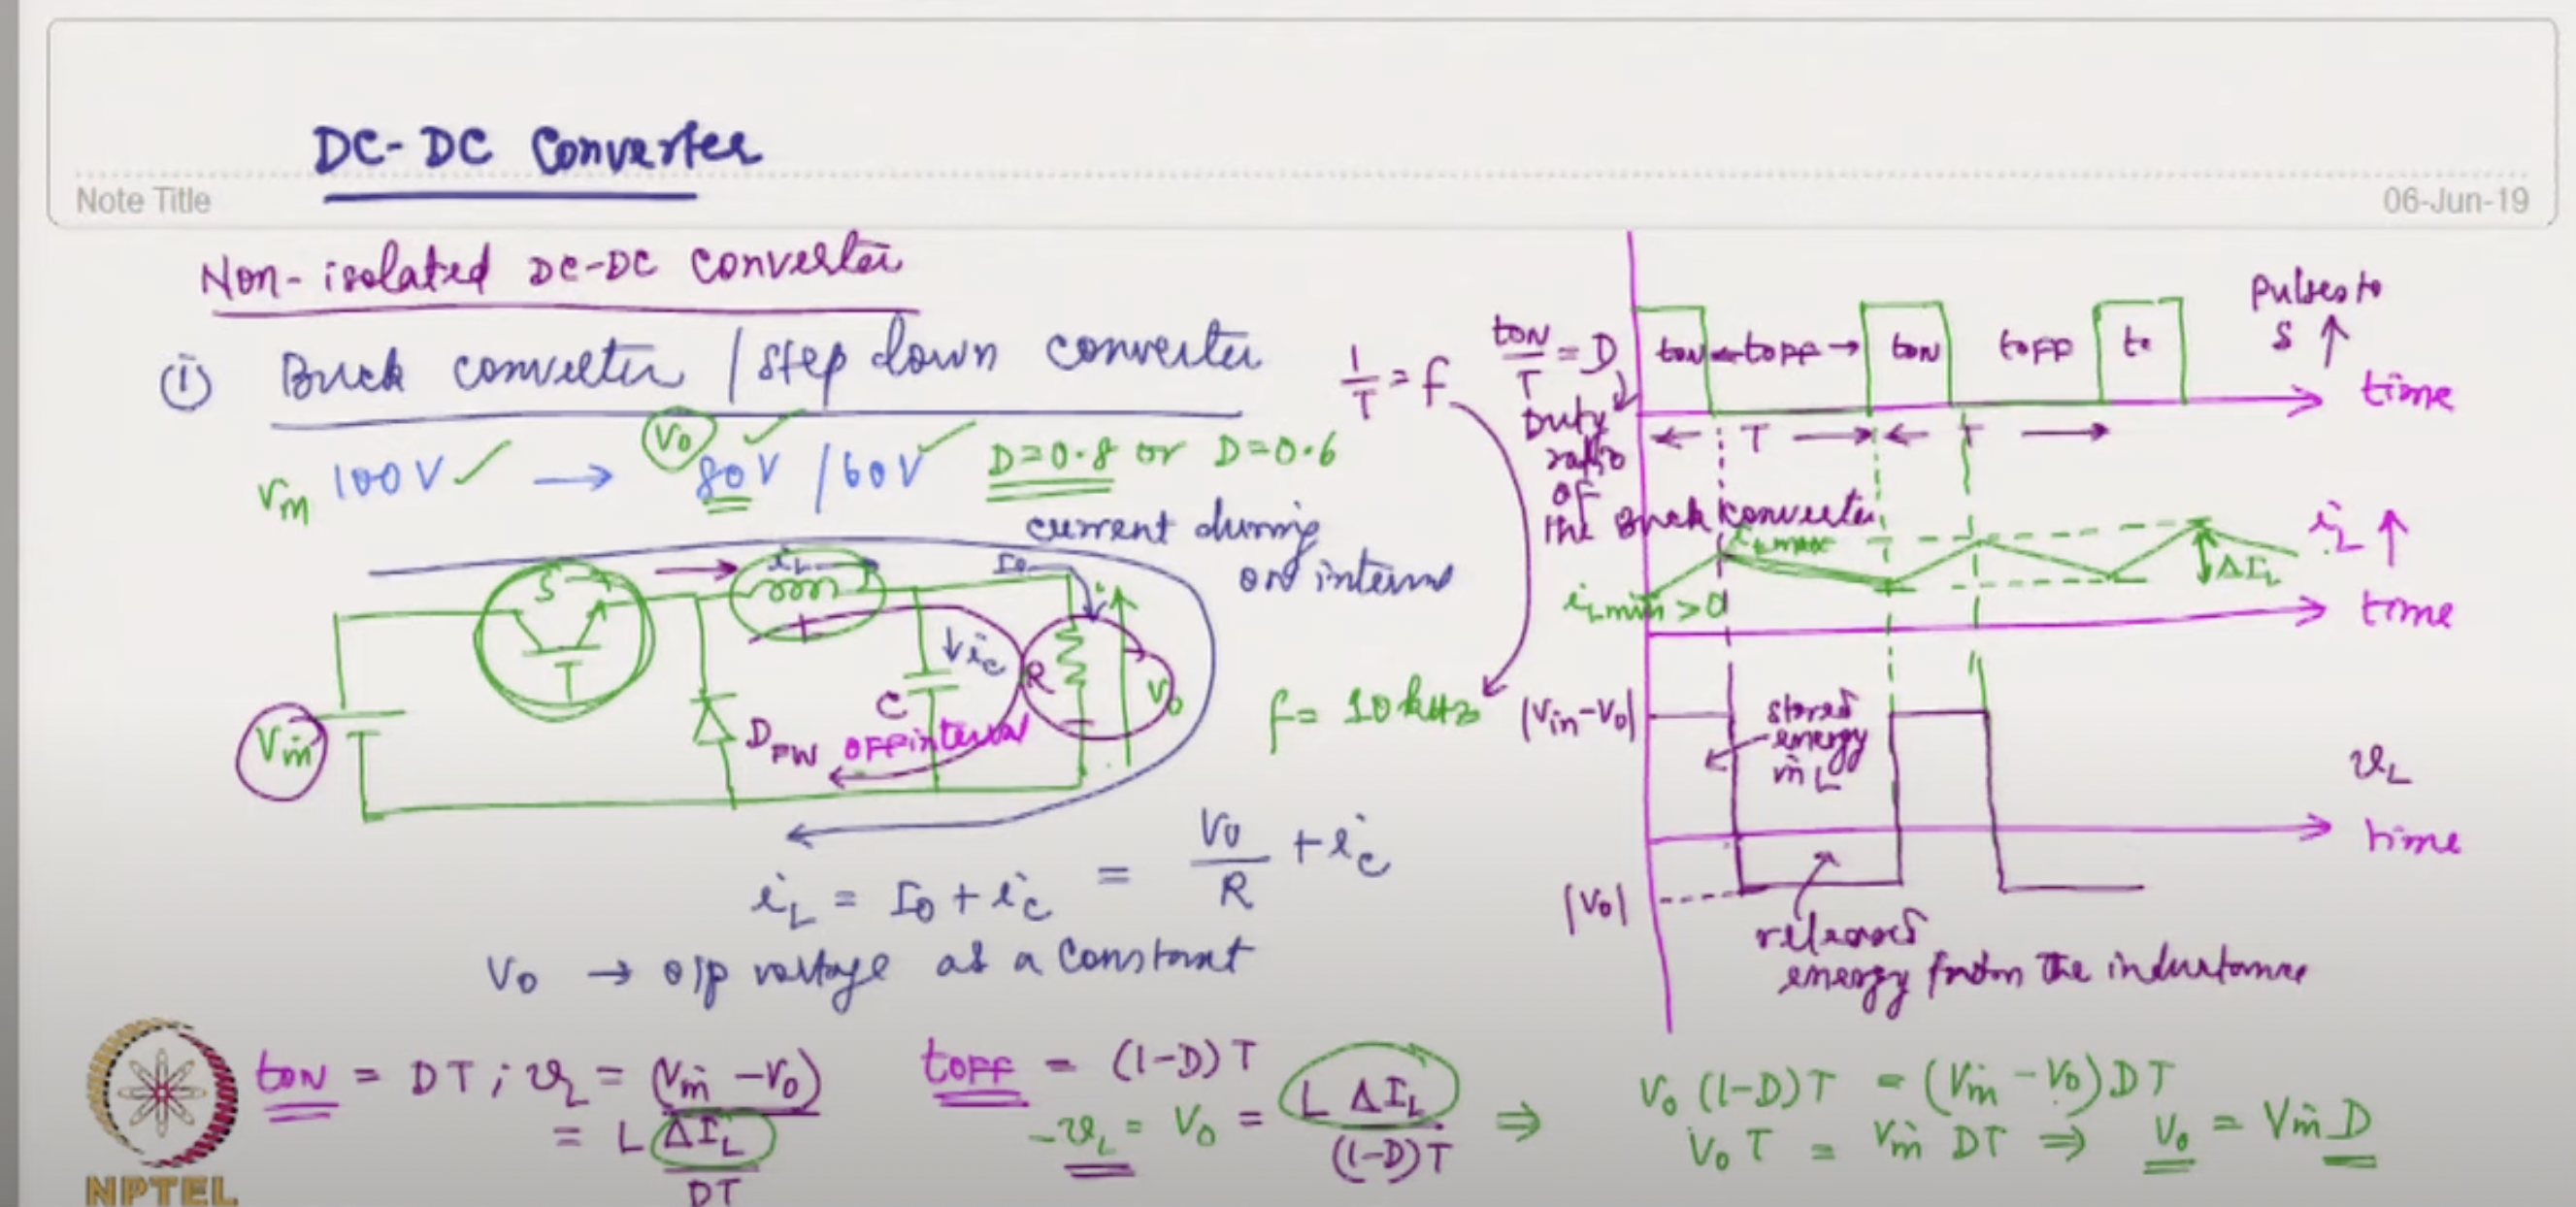 DC-DC Converter
Note Title
06-Jun-19
Non-isolated DC-DC Converter
(i) Buck converter / step down converter
Vin 100V ✓ → V0 80V ✓ / 60V ✓ D=0.8 or D=0.6
current during
ON interval
S
iL
I0
T
ic
R
C
V0
Vin
DFW
OFF interval
iL = I0 + ic = V0/R + ic
V0 → o/p voltage as a constant
1/T = f
f = 10 kHz
tON/T = D
Duty
ratio
of
the Buck converter
tON ←tOFF→ tON tOFF to
Pulses to
S ↑
time
← T → ← T →
iLmax
iL ↑
ΔIL
iLmin > 0
time
|Vin-V0|
stored
energy
in L
vL
time
|V0|
releases
energy from the inductance
tON = DT ; vL = (Vin - V0)
= L ΔIL/DT
tOFF = (1-D)T
-vL = V0 = L ΔIL/(1-D)T ⇒
V0 (1-D)T = (Vin - V0) DT
V0 T = Vin DT ⇒ V0 = Vin D
NPTEL